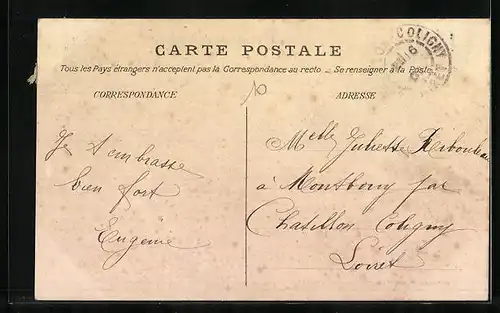 CARTE POSTALE
Tous les Pays étrangers n'acceptent pas la Correspondance au recto — Se renseigner à la Poste
CORRESPONDANCE
ADRESSE
10
COLIGNY
16
Je t'embrasse
bien fort
Eugénie
Melle Juliette
à Montbouy par
Chatillon Coligny
Loiret